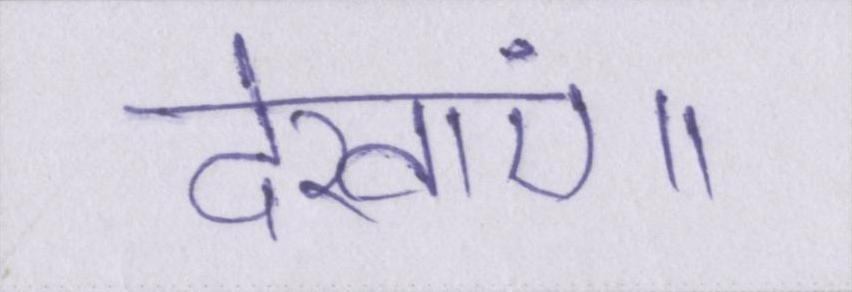 देखाएं॥